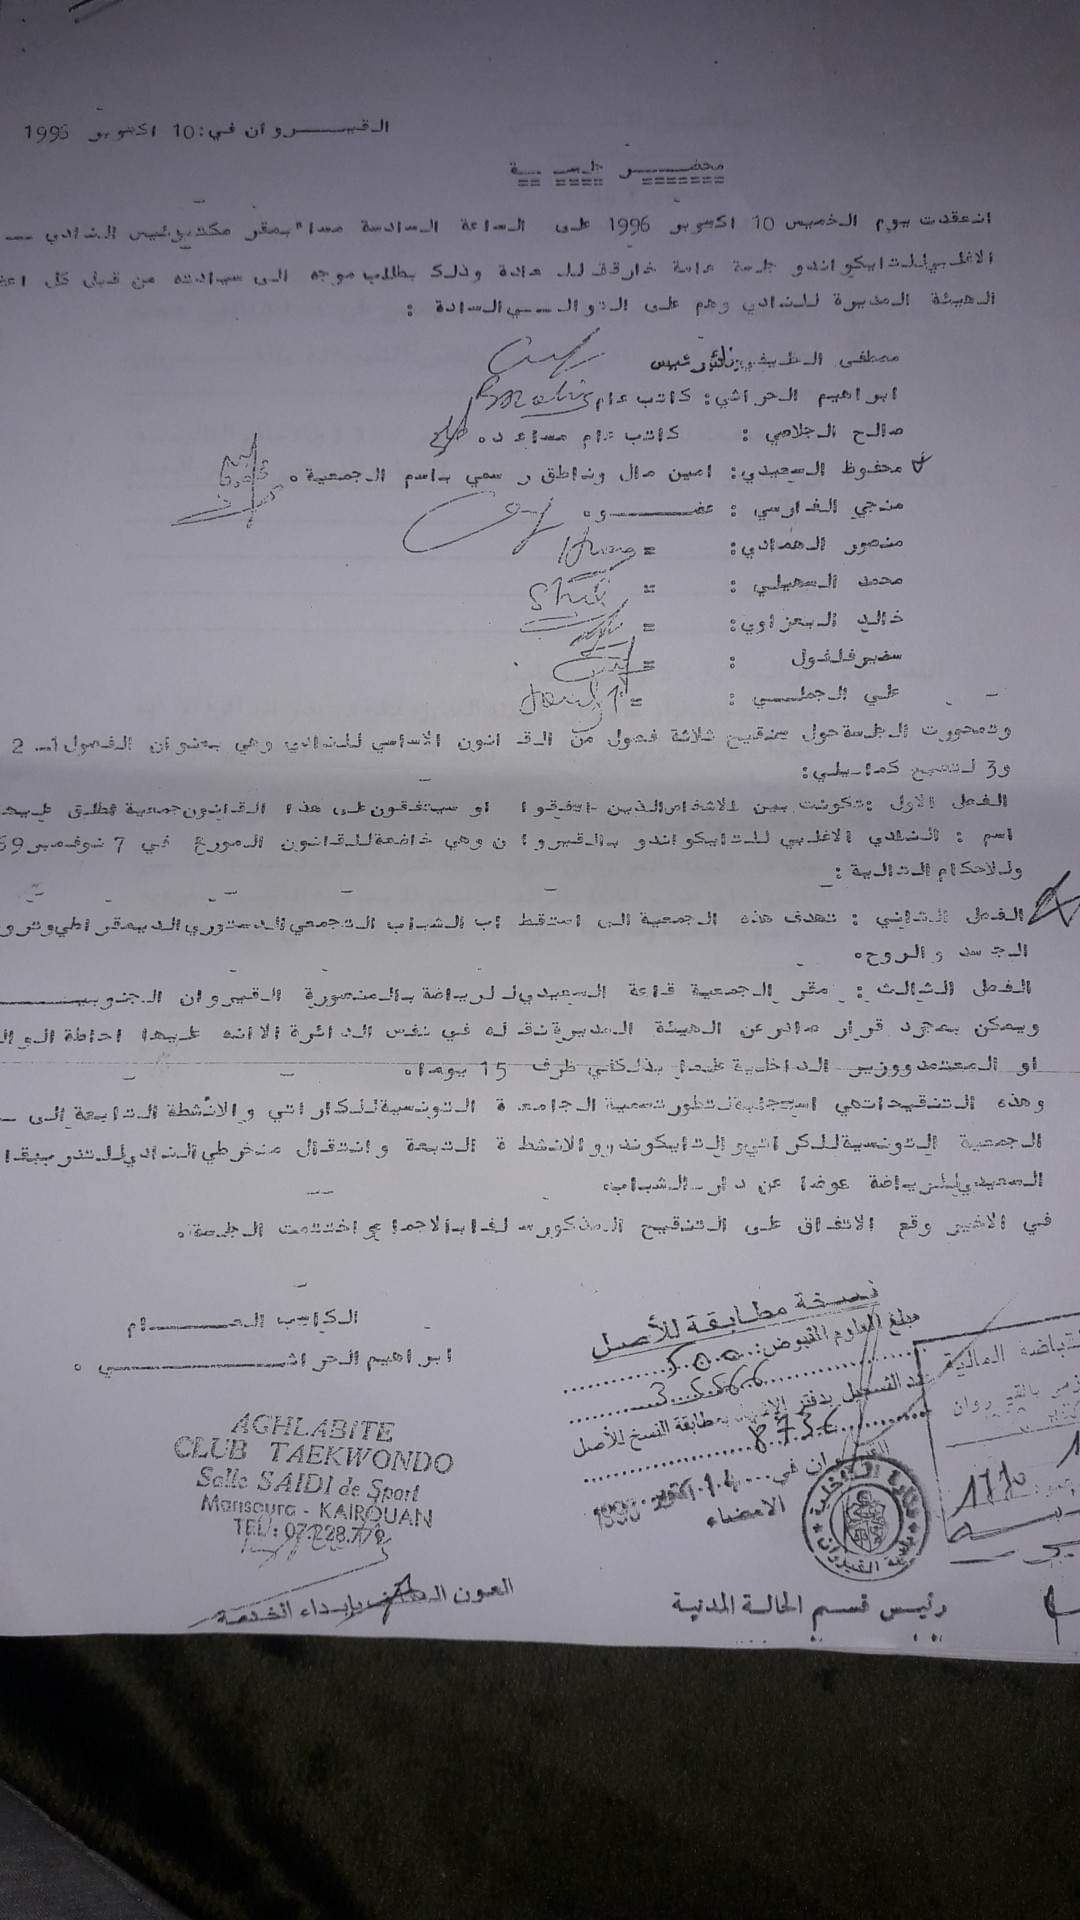 القيــــروان في: 10 اكتوبر 1996
محضــــر جلســـة
انعقدت يوم الخميس 10 اكتوبر 1996 على الساعة السادسة مساء بمقر مكتب رئيس النادي ـــ
الاغلبي للتايكواندو جلسة عامة خارقة للعادة وذلك بطلب موجه الى سيادته من قبل كل
الهيئة المديرة للنادي وهم على التوالــــي السادة :
مصطفى نائب رئيس
ابراهيم الحراشي: كاتب عام
صالح الجلاصي : كاتب عام مساعد.
محفوظ السعيدي: امين مال وناطق رسمي باسم الجمعية.
منجي الفارسي : عضـــــو.
منصور الهمادي: =
محمد السهيلي : =
خالد البعزاوي: =
سمير فلفول : =
علي الجملــــي : =
وتمحورت الجلسة حول تنقيح ثلاثة فصول من القانون الاساسي للنادي وهي بعنوان الفصول 1ـ 2
و3 لتصبح كما يلي:
الفصل الاول :تكونت بين الاشخاص الذين اتفقوا او سيتفقون على هذا القانون جمعية يطلق عليها
اسم : النادي الاغلبي للتايكواندو بالقيروان وهي خاضعة للقانون المورخ في 7 نوفمبر
وللاحكام التالية :
الفصل الثاني : تهدف هذه الجمعية الى استقطاب الشباب التجمعي الدستوري الديمقراطي
الجسد والروح.
الفصل الثالث : مقر الجمعية قاعة السعيدي للرياضة بالمنصورة القيروان الجنوبيــــــة
ويمكن بمجرد قرار صادر عن الهيئة المديرة نقله في نفس الدائرة الا انه عليها احاطة
او المعتمد ووزير الداخلية علما بذلك في ظرف 15 يوما.
وهذه التنقيحات هي استجابة لتطور تسمية الجامعة التونسية للكاراتي والانشطة التابعة الى ـــ
الجمعية التونسية للكراتي والتايكوندو والانشطة التبعة وانتقال منخرطي النادي للتدرب
السعيدي للرياضة عوضا عن دار الشباب.
في الاخير وقع الاتفاق على التنقيح المذكور سلفا بالاجماع واختتمت الجلسة.
الكاتب العــــــام
ابراهيم الحراشــــــــي .
نسخة مطابقة للأصل
مبلغ المعلوم المقبوض: 500
عدد التسجيل بدفتر الإشهاد بمطابقة النسخ للأصل
الامضاء
رئيس قسم الحالة المدنية
AGHLABITE
CLUB TAEKWONDO
Salle SAIDI de Sport
Mansoura - KAIROUAN
TEL: 07.228.779
العون المكلف بإسداء الخدمة
وزارة الداخلية
بلدية القيروان
القباضة المالية
بالقيروان